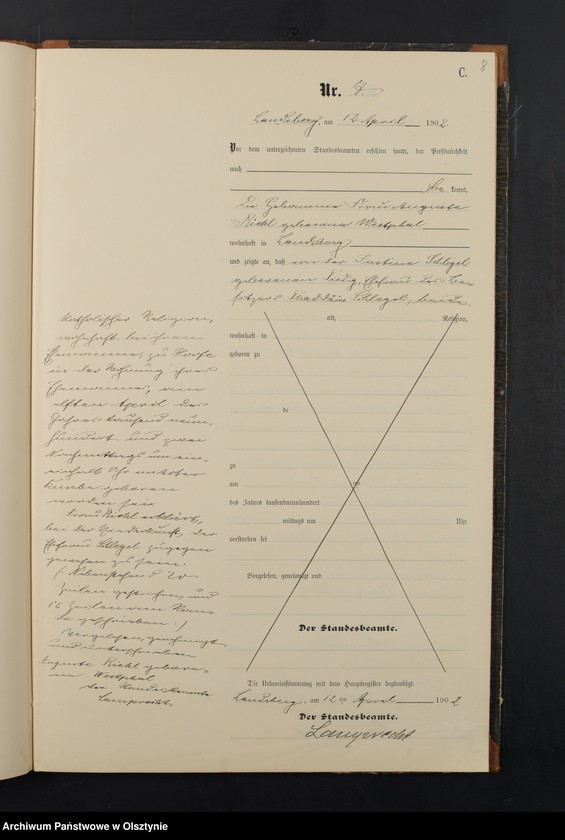 C. 8
Nr. 7.
Landsberg, am 12 April 1902
Vor dem unterzeichneten Standesbeamten erschien heute, der Persönlichkeit
nach
be kannt,
die Hebamme Frau Auguste
Riehl geborene Westphal
wohnhaft in Landsberg
und zeigte an, daß von der Justine Schlegel
geborenen Fiedig, Ehefrau des Be-
sitzers Thaddäus Schlegel, beide
alt, Religion,
wohnhaft in
geboren zu
de
zu
am ten
des Jahres tausendneunhundert
mittags um Uhr
verstorben sei
Vorgelesen, genehmigt und
Der Standesbeamte.
katholischer Religion,
wohnhaft bei ihrem
Ehemanne, zu
in der Wohnung ihres
Ehemannes, am
elften April des
Jahres tausend neun-
hundert und zwei
Nachmittags um ein-
einhalb Uhr ein todter
Knabe geboren
worden sei.
Frau Riehl erklärt,
bei der Niederkunft der
Ehefrau Schlegel zugegen
gewesen zu sein.
(: Nebenstehend 20
Zeilen gestrichen und
16 Zeilen am Ran-
de geschrieben :)
Vorgelesen, genehmigt
und unterschrieben
Auguste Riehl gebore-
ne Westphal
der Standesbeamte
Lamprecht
Die Uebereinstimmung mit dem Hauptregister beglaubigt.
Landsberg, am 12 ten April 1902
Der Standesbeamte.
Lamprecht
Archiwum Państwowe w Olsztynie